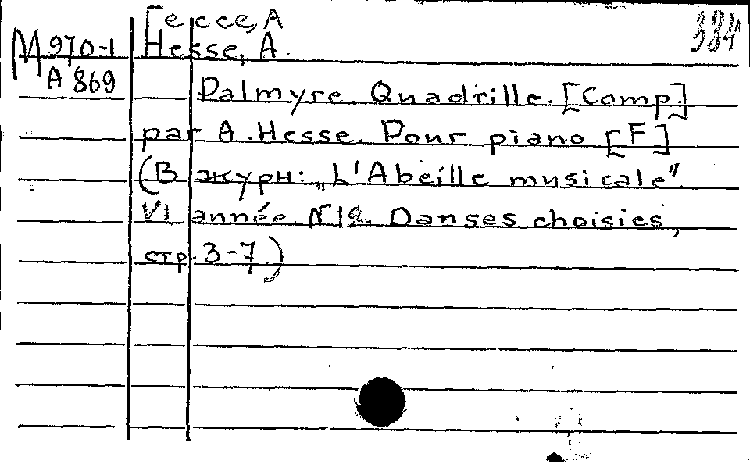 Гессе, А
334
М 970-1
Hesse, A.
А 869
Palmyre. Quadrille. [Comp.]
par A. Hesse. Pour piano [F]
(В журн: „L'Abeille musicale"
VI année N 12. Danses choisies,
стр. 3-7.)